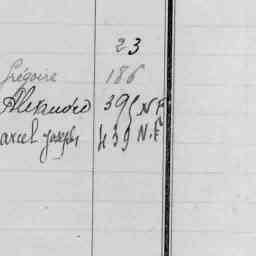 23
Grégoire 186
Alexandre 395 N.F
arcel Joseph 439 N.F